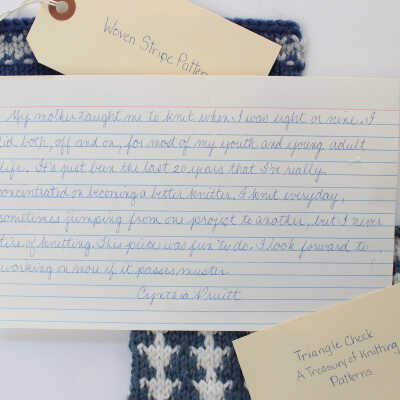 Woven Stripe Pattern
My mother taught me to knit when I was eight or nine. I
did both, off and on, for most of my youth and young adult
life. It's just been the last 20 years that I've really
concentrated on becoming a better knitter. I knit everyday,
sometimes jumping from one project to another, but I never
tire of knitting. This piece was fun to do. I look forward to
working on more if it passes muster.
Cynthia Pruitt
Triangle Check
A Treasury of Knitting
Patterns